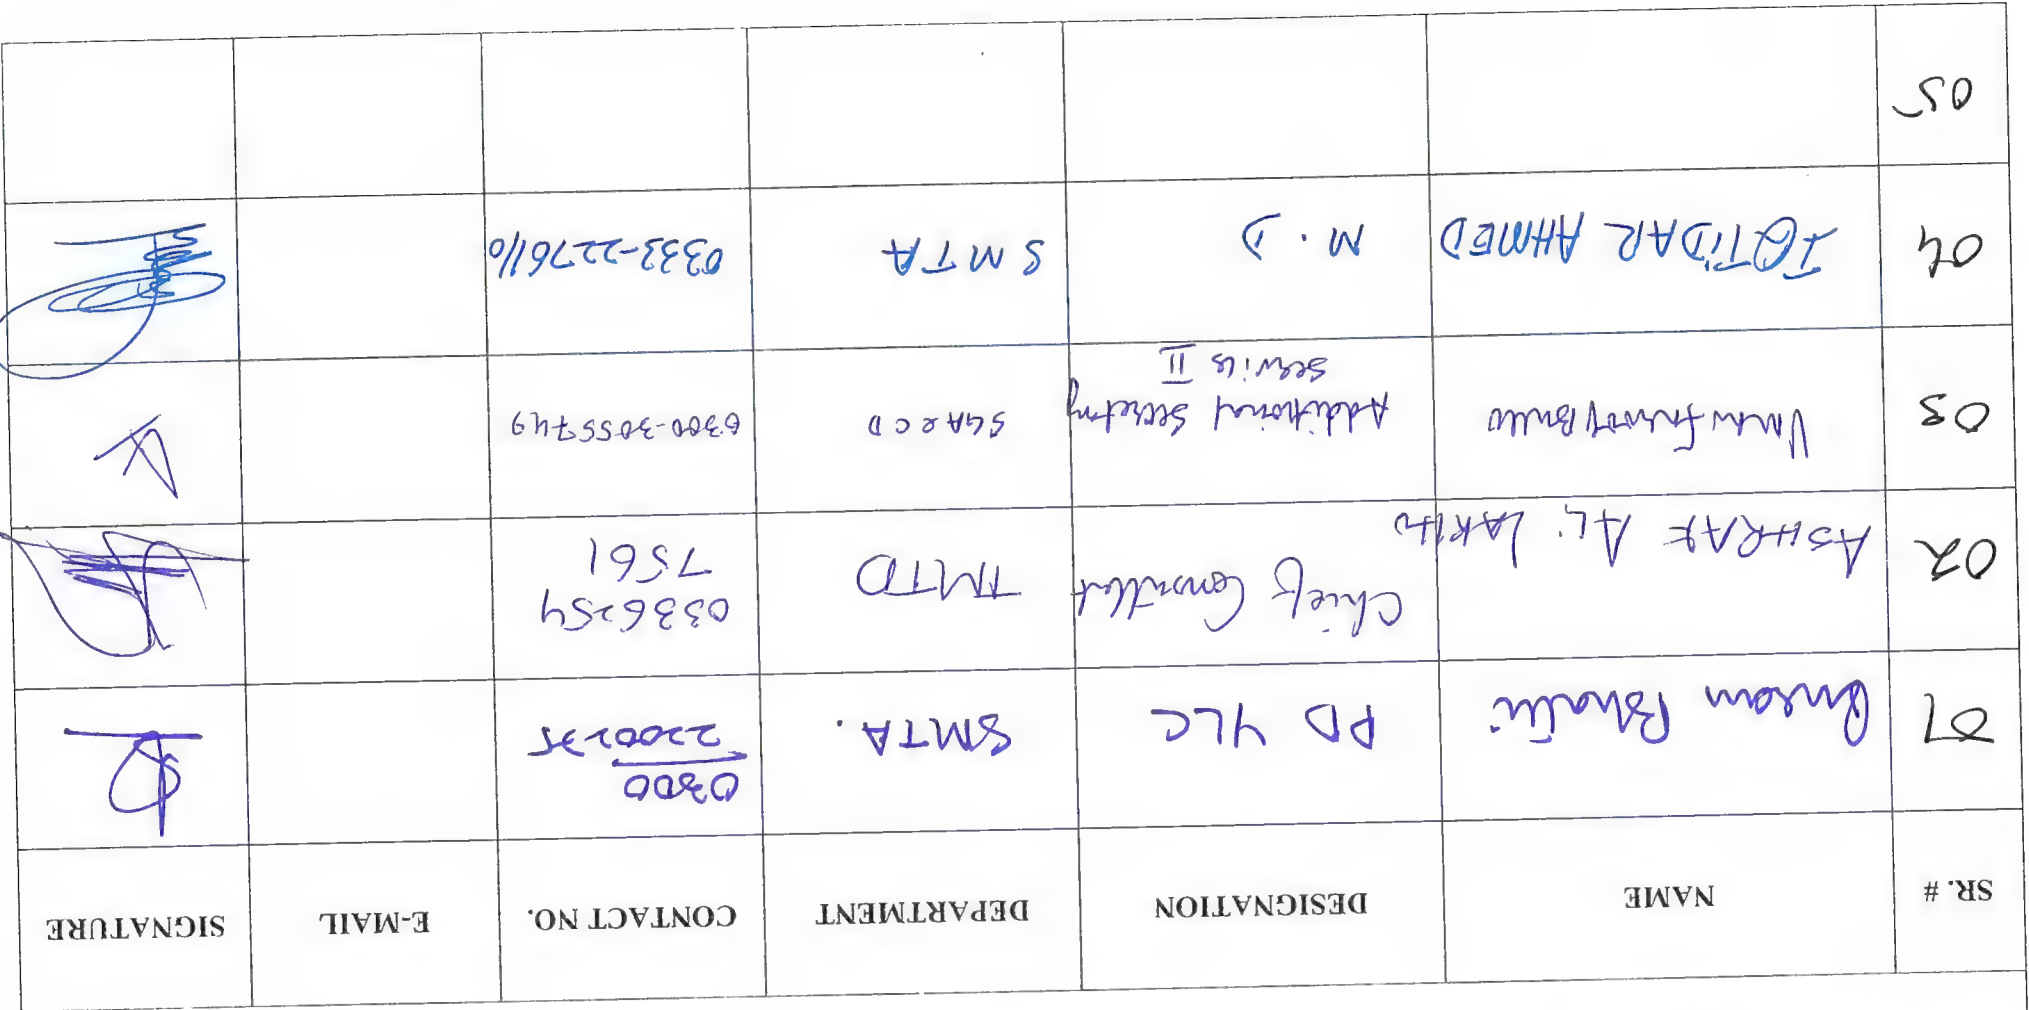 SR. # NAME DESIGNATION DEPARTMENT CONTACT NO. E-MAIL SIGNATURE
01 Bhatti PD YLC SMTA. 0300
2200275
02 ASHRAF ALI LAKHO Chief Consultant TMTD 0336254
7561
03 Umar Farooq Bullo Additional Secretary SGA&CD 0300-3055749
Services II
04 IQTIDAR AHMED M.D SMTA 0333-2276110
05